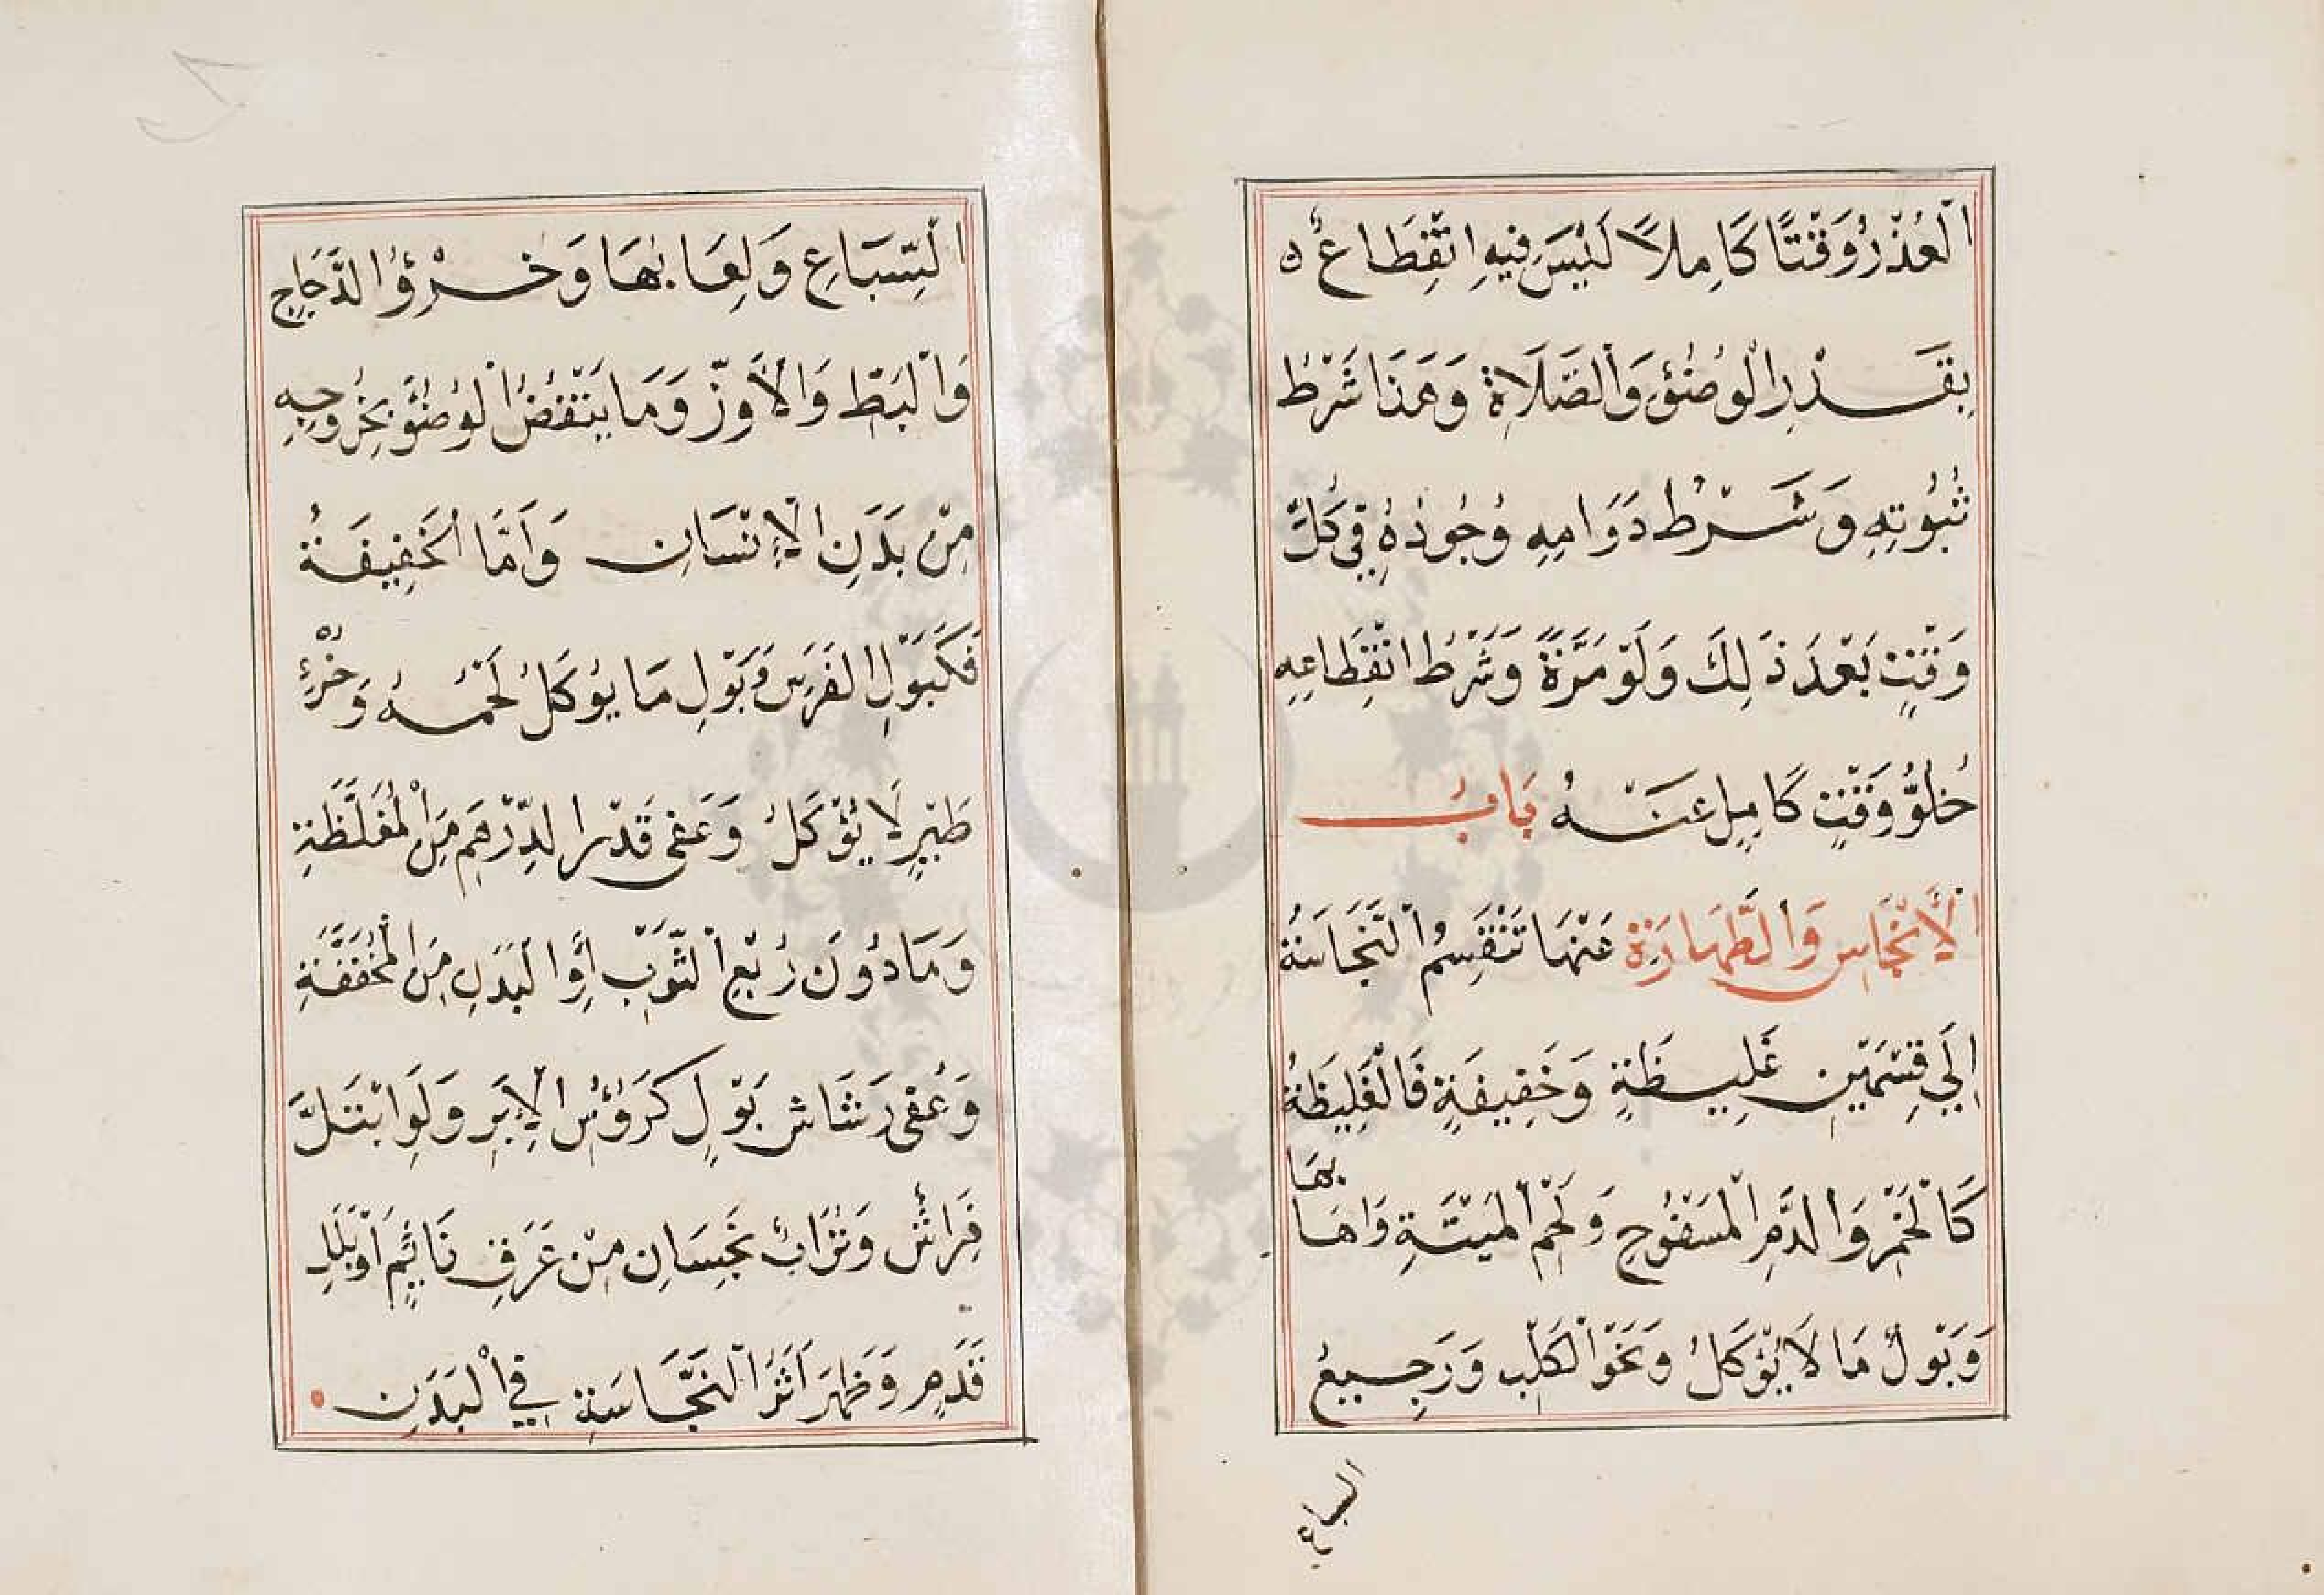 الْعُذْرُ وَقْتًا كَامِلاً لَيْسَ فِيهِ انْقِطَاعٌ ه
بِقَدْرِ الْوُضُؤِ وَالْصَّلَاةِ وَهَذَا شَرْطُ
ثُبُوتِهِ وَشَرْطُ دَوَامِهِ وُجُودُهُ فِي كُلِّ
وَقْتٍ بَعْدَ ذَلِكَ وَلَوْ مَرَّةً وَشَرْطُ انْقِطَاعِهِ
خُلُوُّ وَقْتٍ كَامِلٍ عَنْهُ بَابُ
الْأَنْجَاسِ وَالطَّهَارَةِ عَنْهَا تَنْقَسِمُ الْنَّجَاسَةُ
اِلَي قِسْمَيْنِ غَلِيظَةٍ وَخَفِيفَةٍ فَالْغَلِيظَةُ
كَالْخَمْرِ وَالدَّمِ الْمَسْفُوحِ وَلَحْمِ الْمَيْتَةِ وَاهَا بهَا
وَبَوْلُ مَا لَا يُؤْكَلُ وَنَحْوِ الْكَلْبِ وَرَجِيعُ
السباع
الْسِّبَاعِ وَلِعَابهَا وَخْرؤُ الدَّجَاجِ
وَالْبَطِّ وَالْأَوزّ وَمَا يَنْتَقِضُ الْوُضُؤُ بِخُرُوجِهِ
مِنْ بَدَنِ الْإِنْسَانِ وَاَمَّا الْخَفِيفَةُ
فَكَبَوْلِ الْفَرَسِ وَبَوْلِ مَا يُوكَلُ لَحْمُهُ وَخْرْءُ
طَيْرٍ لَا يُؤْكَلُ وَعَفى قَدْرَ الدِّرْهَمِ مِنَ الْمُغَلَّظَةِ
وَمَا دُونَ رُبْعِ الْثَّوْبِ أَوِ الْبَدَنِ مِنَ الْمُخَفَّفَةِ
وَعُفِى رَشَاشُ بَوْلٍ كَرُؤُسِ الْإِبَرِ وَلَوِ ابْتَلَّ
فِرَاشٌ وَتُرَابٌ نَجِسَانِ مِنْ عَرَقِ نَائِمٍ اَوْ بَلَلِ
قَدَمٍ وَظَهَرَ اَثَرُ الْنَّجَاسَةِ فِي الْبَدَنِ